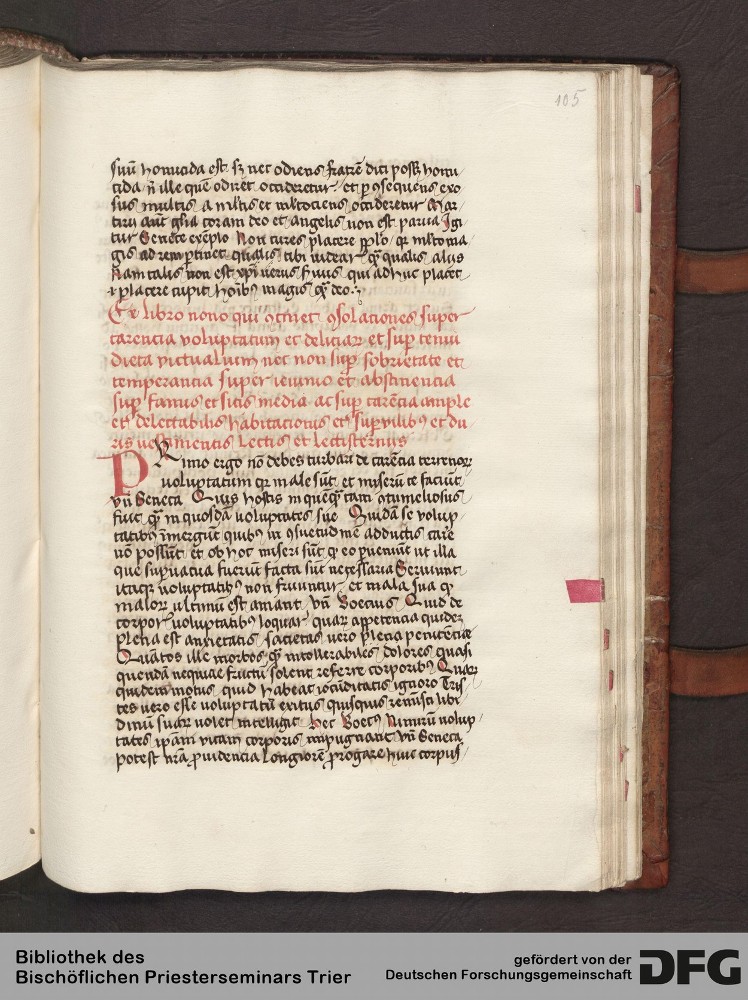 105
suū homicida est sz nec odiens fratrē dici posset homi
cida n̄ ille quē odiret occideretur et p ꝯsequens exo
sus multis a mltis et mltociens occideretur Mar
tirū aut gl̄ia coram deo et angelis non est parua Igi
tur Senece exēplo Non cures placere pplo qr mlto ma
gis ad rem ptinet qualis tibi videar̄ qȝ qualis aliis
Nam talis non est xpi verus s̄uus qui adhuc placet
⁊ placere cupit hoīb9 magis qȝ deo
Ex libro nono qui ꝯtinet ꝯsolationes super
carencia voluptatum et deliciaꝝ et sup tenui
dieta victualium nec non sup sobrietate et
temperancia super ieiunio et abstinencia
sup famis et sitis media ac sup carēcia ample
et delectabilis habitacionis et sup vilib9 et du
ris vestimentis lectis et lectisterniis
PRimo ergo nō debes turbari de carēcia terrenoꝝ
voluptatum qr male sūt et miserū te faciūt
vn̄ Seneca Quis hostis in quēqȝ tam ꝯtumeliosus
fuit qȝ in quosdā voluptates sue Quidā se volup
tatib9 īmergūt quib9 in ꝯsuetudinē adductis care
nō possūt et ob hoc miseri sūt qr eo puenīut ut illa
que supuacua fuerūt facta sūt necessaria Seruiunt
itaqȝ voluptatib9 non fruuntur et mala sua qr
maloꝝ ultimū est amant vn̄ Boecius Quid de
corporꝫ voluptatib9 loquar quaꝝ appetencia quideȝ
plena est anxietatis sacietas vero plena penitēcie
Quātos ille morbos qȝ intollerabiles dolores quasi
quendā nequicie fructū solent referre corporib9 Quaꝝ
quidem motus quid habeat iocūditatis ignoro Tris
tes vero esse voluptatū exitus quisquis remisci libi
dinū suaꝝ volet intelligit hec Boeci9 Nimirū volup
tates ipām vitam corporis impugnant vn̄ Seneca
potest nr̄a ꝓuidencia longiorē ꝓrogare huic corpus
Bibliothek des
Bischöflichen Priesterseminars Trier
gefördert von der
Deutschen Forschungsgemeinschaft
DFG